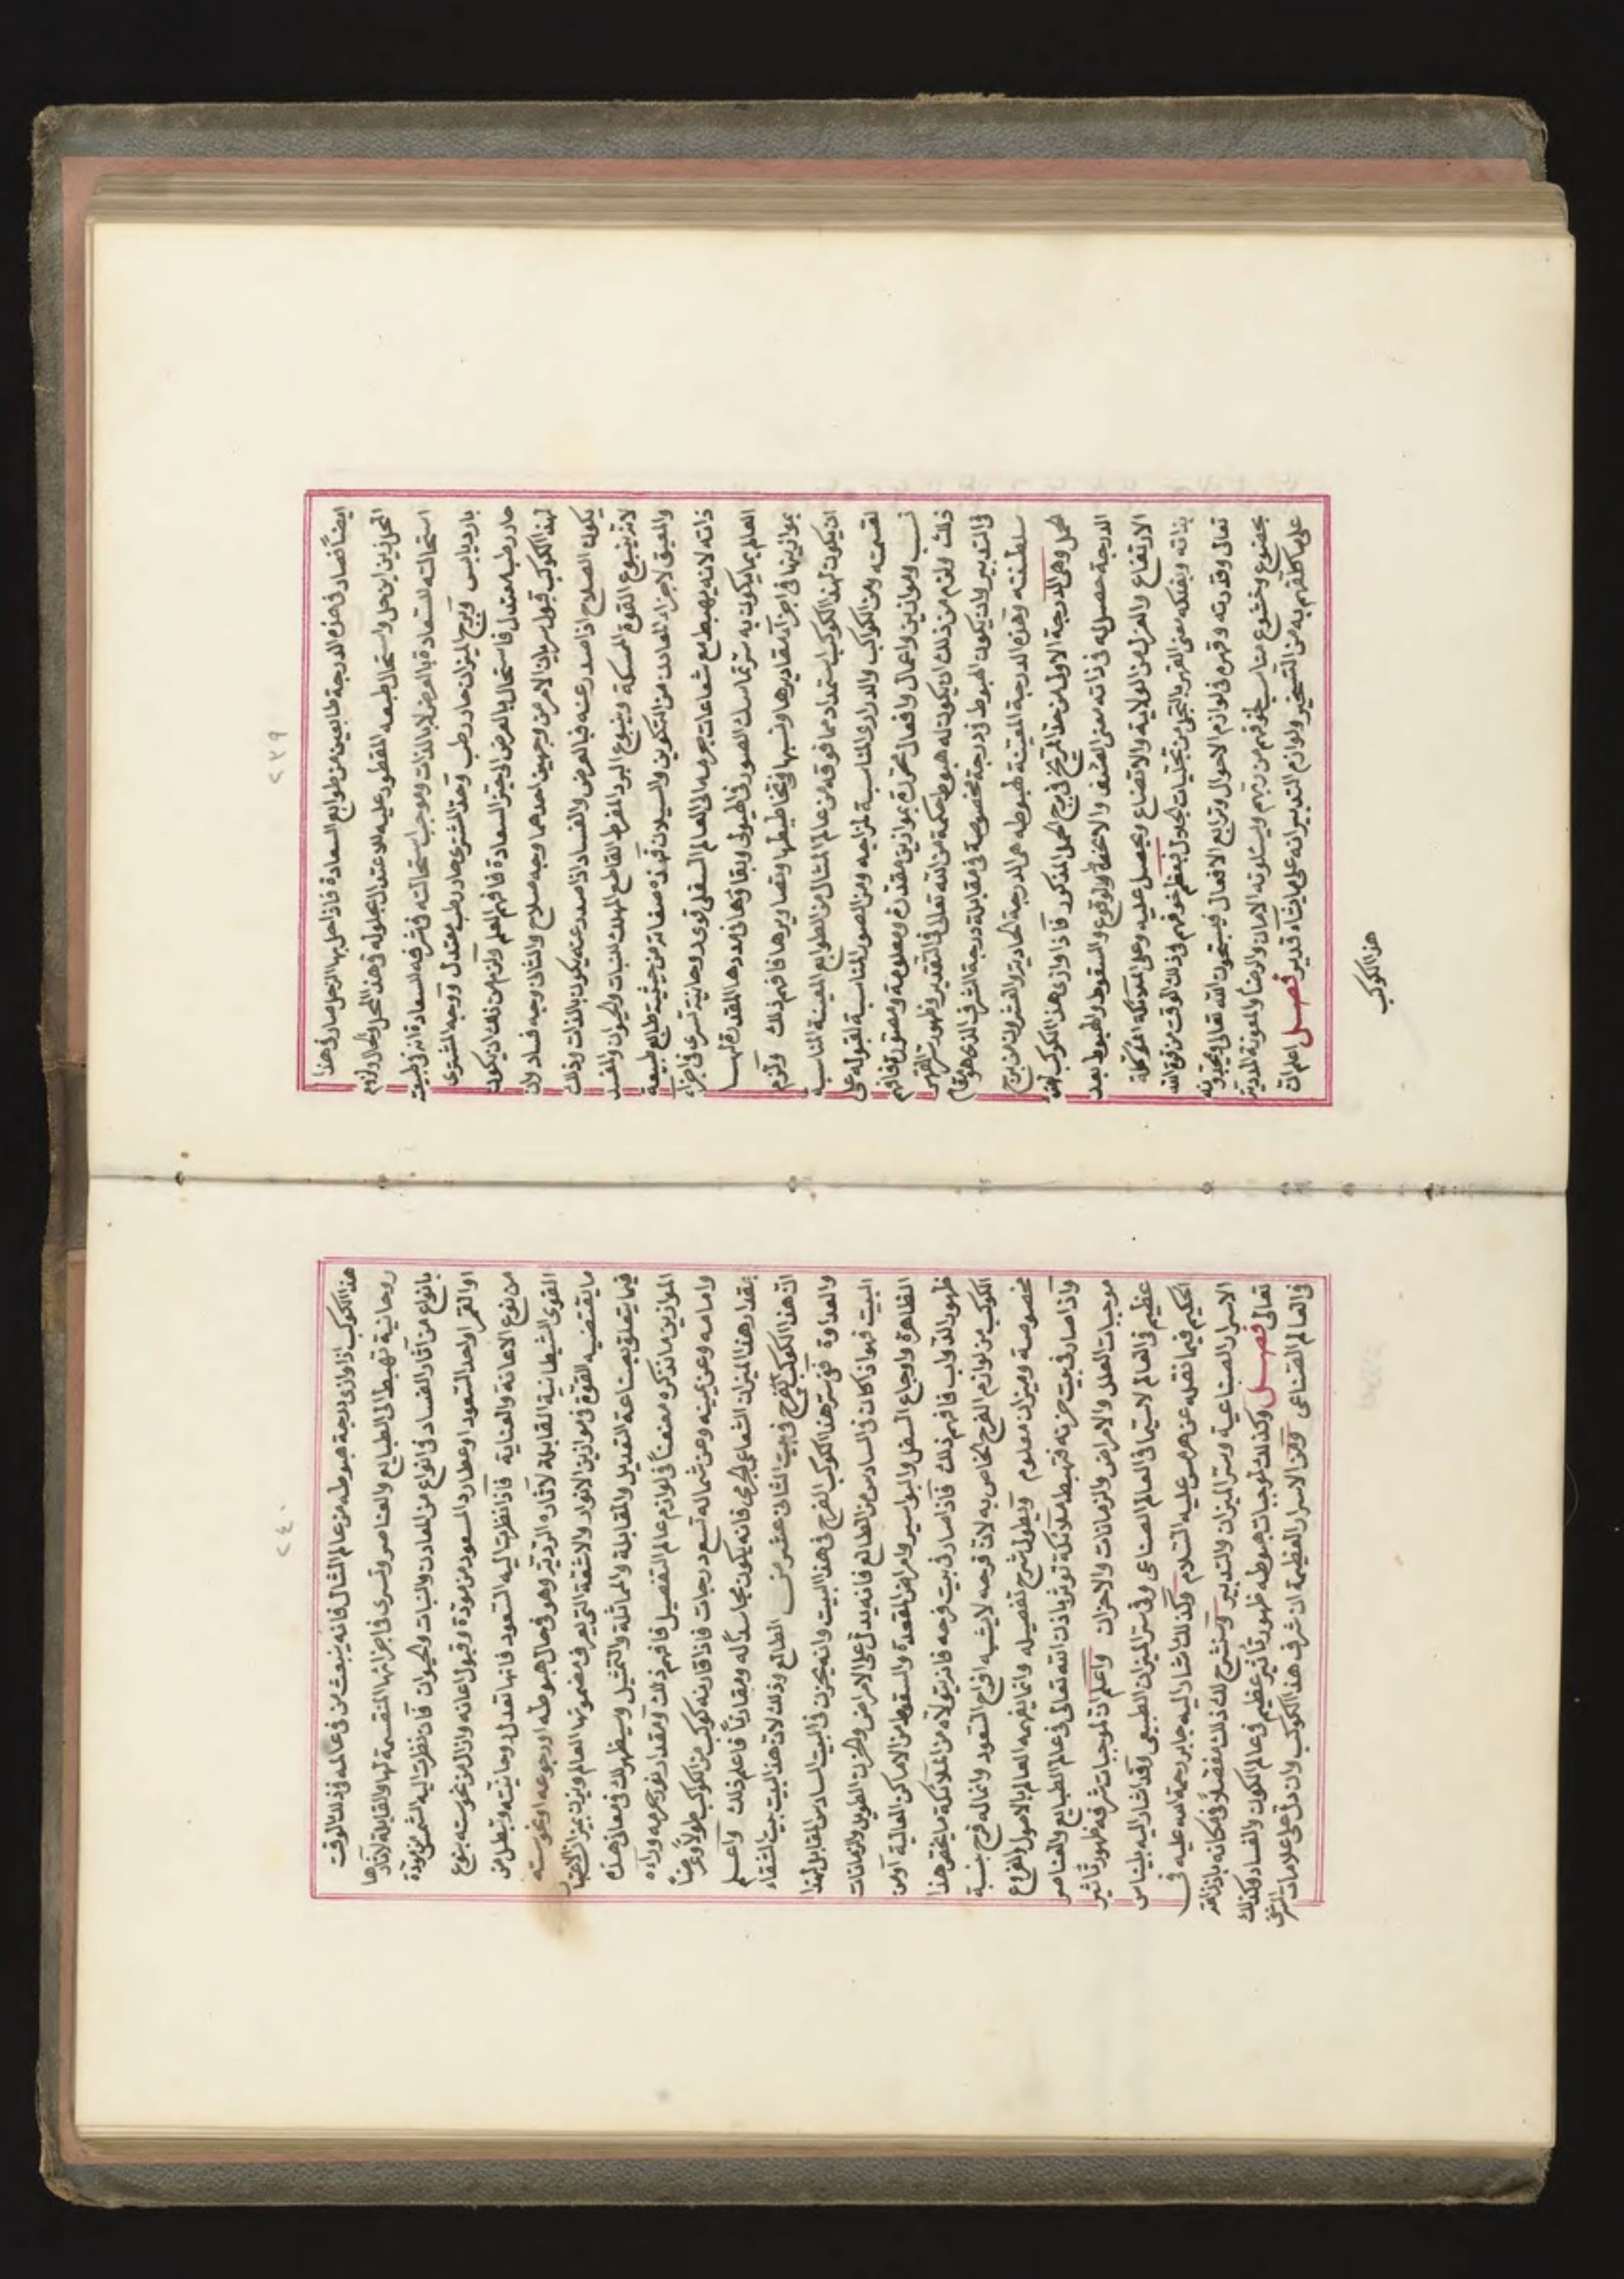 ٢٣٩
ايضاً فصار في هذه الدرجة طابعين من طوابع السعادة فاذا حل بها الزحل صار في هذا
المحل زين ابن حل واستحال طبعه المفطور عليه للاعتدال بحلوله في هذا المحل والحال ولزوم
استحالته للسعادة بالعرض لا بالذات وموجب استحالته في شرفه للسعادة انه في طبيعته
بارد يابس وبرج الميزان حار رطب وحد المشتري حار رطب معتدل ووجه المشتري
حار رطب معتدل فاستحال بالعرض الى حيز السعادة فافهم العلم ولزم من ذلك ان يكون
لهذا الكوكب قبول سريان الامر من وجهين احدهما وجه صلاح والثاني وجه فساد لان
يكون الصلاح اذا صدر عنه فبالعرض والفساد اذا صدر عنه يكون بالذات وذلك
لانه ينبوع القوة الممسكة وينبوع البرد المفرط القاطع المهلك للنبات والحيوان والمفسد
والمعيق لاجزاء المعادن من التكوين والسيلان فهذه صفاته من حيثية طابع طبيعة
ذاته لانه يهبط مع شعاعات جرمه الى العالم السفلي قوى روحانية تسري في اجزاء
العالم بما يكون به سر تماسك الصور في الهيولى وبقاؤها في مددها المقدرة لها
بموازينها في اجزاء مقاديرها ونسبها وتخاطيطها وتصاويرها فافهم ذلك ولزم
ان يكون لهذا الكوكب استمداد مما فوقه من عالم المثال من الطوابع المعينة المناسبة
لقسمته ومن الكواكب والدراري المناسبة لمزاجه ومن الصور المناسبة لقبوله على
نسب وموازين واعمال وافعال محررة بموازين مقدرة ومعلومة ومصورة فافهم
ذلك ولزم من ذلك ان يكون له هبوط حكمة من الله تعالى في التقدير وظهور سر القهر
في التدبير ولان يكون الهبوط في درجة مخصوصة في مقابلة درجة الشرف الذي هو مقام
سلطنته وهذه الدرجة المعينة لهبوطه هي الدرجة الحادية والعشرون من برج
الحمل وهي الدرجة الاولى من حد المريخ في برج الحمل المذكور فاذا وازى هذا الكوكب لهذه
الدرجة حصل له في ذاته معنى الضعف والانحطاط والوقوع والسقوط والهبوط بعد
الارتفاع والعزل من الولاية والاتضاع ويحصل عليه وعلى الملائكة الموكلة
بذاته وبفلكه معنى القهر بالتجلي من تجليات الجلال فيعظم خوفهم في ذلك الوقت من قوة الله
تعالى وقدرته وقهره في لوازم الاحوال وتوابع الافعال فيسبحون الله تعالى ويمجدونه
بخضوع وخشوع مناسب لخوفهم من ربهم ويسئلونه الامان والرضا والمعونة والمدد
على ما كلفهم به من التسخير ولوازم التدبير انه على ما يشاء قدير فصل اعلم ان
هذا الكوكب
٢٤٠
هذا الكوكب اذا وازى درجة هبوطه من عالم المثال فانه ينبعث من في عالمه في ذلك الوقت
روحانية تهبط الى الطبايع والعناصر وتسري في اجزائها المنقسمة لها والقابلة لآثارها
بانواع من آثار الفساد في انواع من المعادن والنبات والحيوان فان نظرت اليه الشمس من مودة
او القمر او احد السعود او عطارد المسعود من مودة وقبول اعانه وازال من نحوسته بنوع
من نوع الاعانة والعناية فاذا نظرت اليه السعود فانها تعدل روحانيته وتبطل من
القوى الشيطانية القابلة لآثاره الرديّة وهو في حال هبوطه او رجوعه او نحوسته
ما يقتضيه القوة في موازين الانوار والاشعة التي يعرف مضمونها العالم وبزن بميزان الاعتبار
فيما يتعلق بصناعة التعديل والمقابلة والمماثلة والتمثيل وسيظهر لك في معاني هذه
الموازين ما نذكره مفصلاً في لوازم عالم التفصيل فافهم ذلك ومقدار نور جرمه وراءه
وامامه وعن يمينه وعن شماله تسع درجات فاذا قارنه كوكب من الكواكب طولاً وعرضاً
بمقدار هذا الميزان الشعاعي الجرمي فانه يكون مجاسداً له ومقارناً فاعلم ذلك واعلم
ان هذا الكوكب يفرح في بيت الثاني عشر من الطالع وذلك لان هذا البيت بيت الشقاء
والعداوة ففي سر هذا الكوكب الفرح في هذا البيت وانه يحزن في البيت السادس المقابل لهذا
البيت فهو اذا كان في السادس من الطالع فانه يدل على الامراض والحزن الطويل والزمانات
الظاهرة واوجاع السفل والبواسير وامراض المقعدة والسقوط من الاماكن العالية او من
ظهور الدواب فافهم ذلك فاذا صار في بيت فرحه فانه يتولاه من الملائكة ما يختص هذا
الكوكب من لوازم الفرح الخاص به لان فرحه لا يشبه افراح السعود وانما له فرح بنسبة
مخصوصة وميزان معلوم ويطول شرح تفصيله وانما يفهمه العالم بالاصول والفروع
واذا صار في بيت حزنه فتهبط ملائكة تؤثر باذن الله تعالى في عالم الطبايع والعناصر
موجبات العلل والامراض والزمانات والاحزان واعلم ان لموجبات شرفه ظهور تأثير
عظيم في العالم لا سيما في العالم الصناعي وفي سر الميزان الطبيعي وقد اشار اليه بليناس
الحكيم فيما نقله عن هرمس عليه السلام وكذلك اشار اليه جابر رحمة الله عليه في
الاسرار الصناعية وسر الميزان والتدبير وسنشرح لك ذلك مفصلاً في مكانه باذن الله
تعالى فصل وكذلك لموجبات هبوطه ظهور تأثير عظيم في عالم الكون والفساد وكذلك
في العالم الصناعي ومن الاسرار العظيمة ان شرف هذا الكوكب وان دل على علامات الشرف